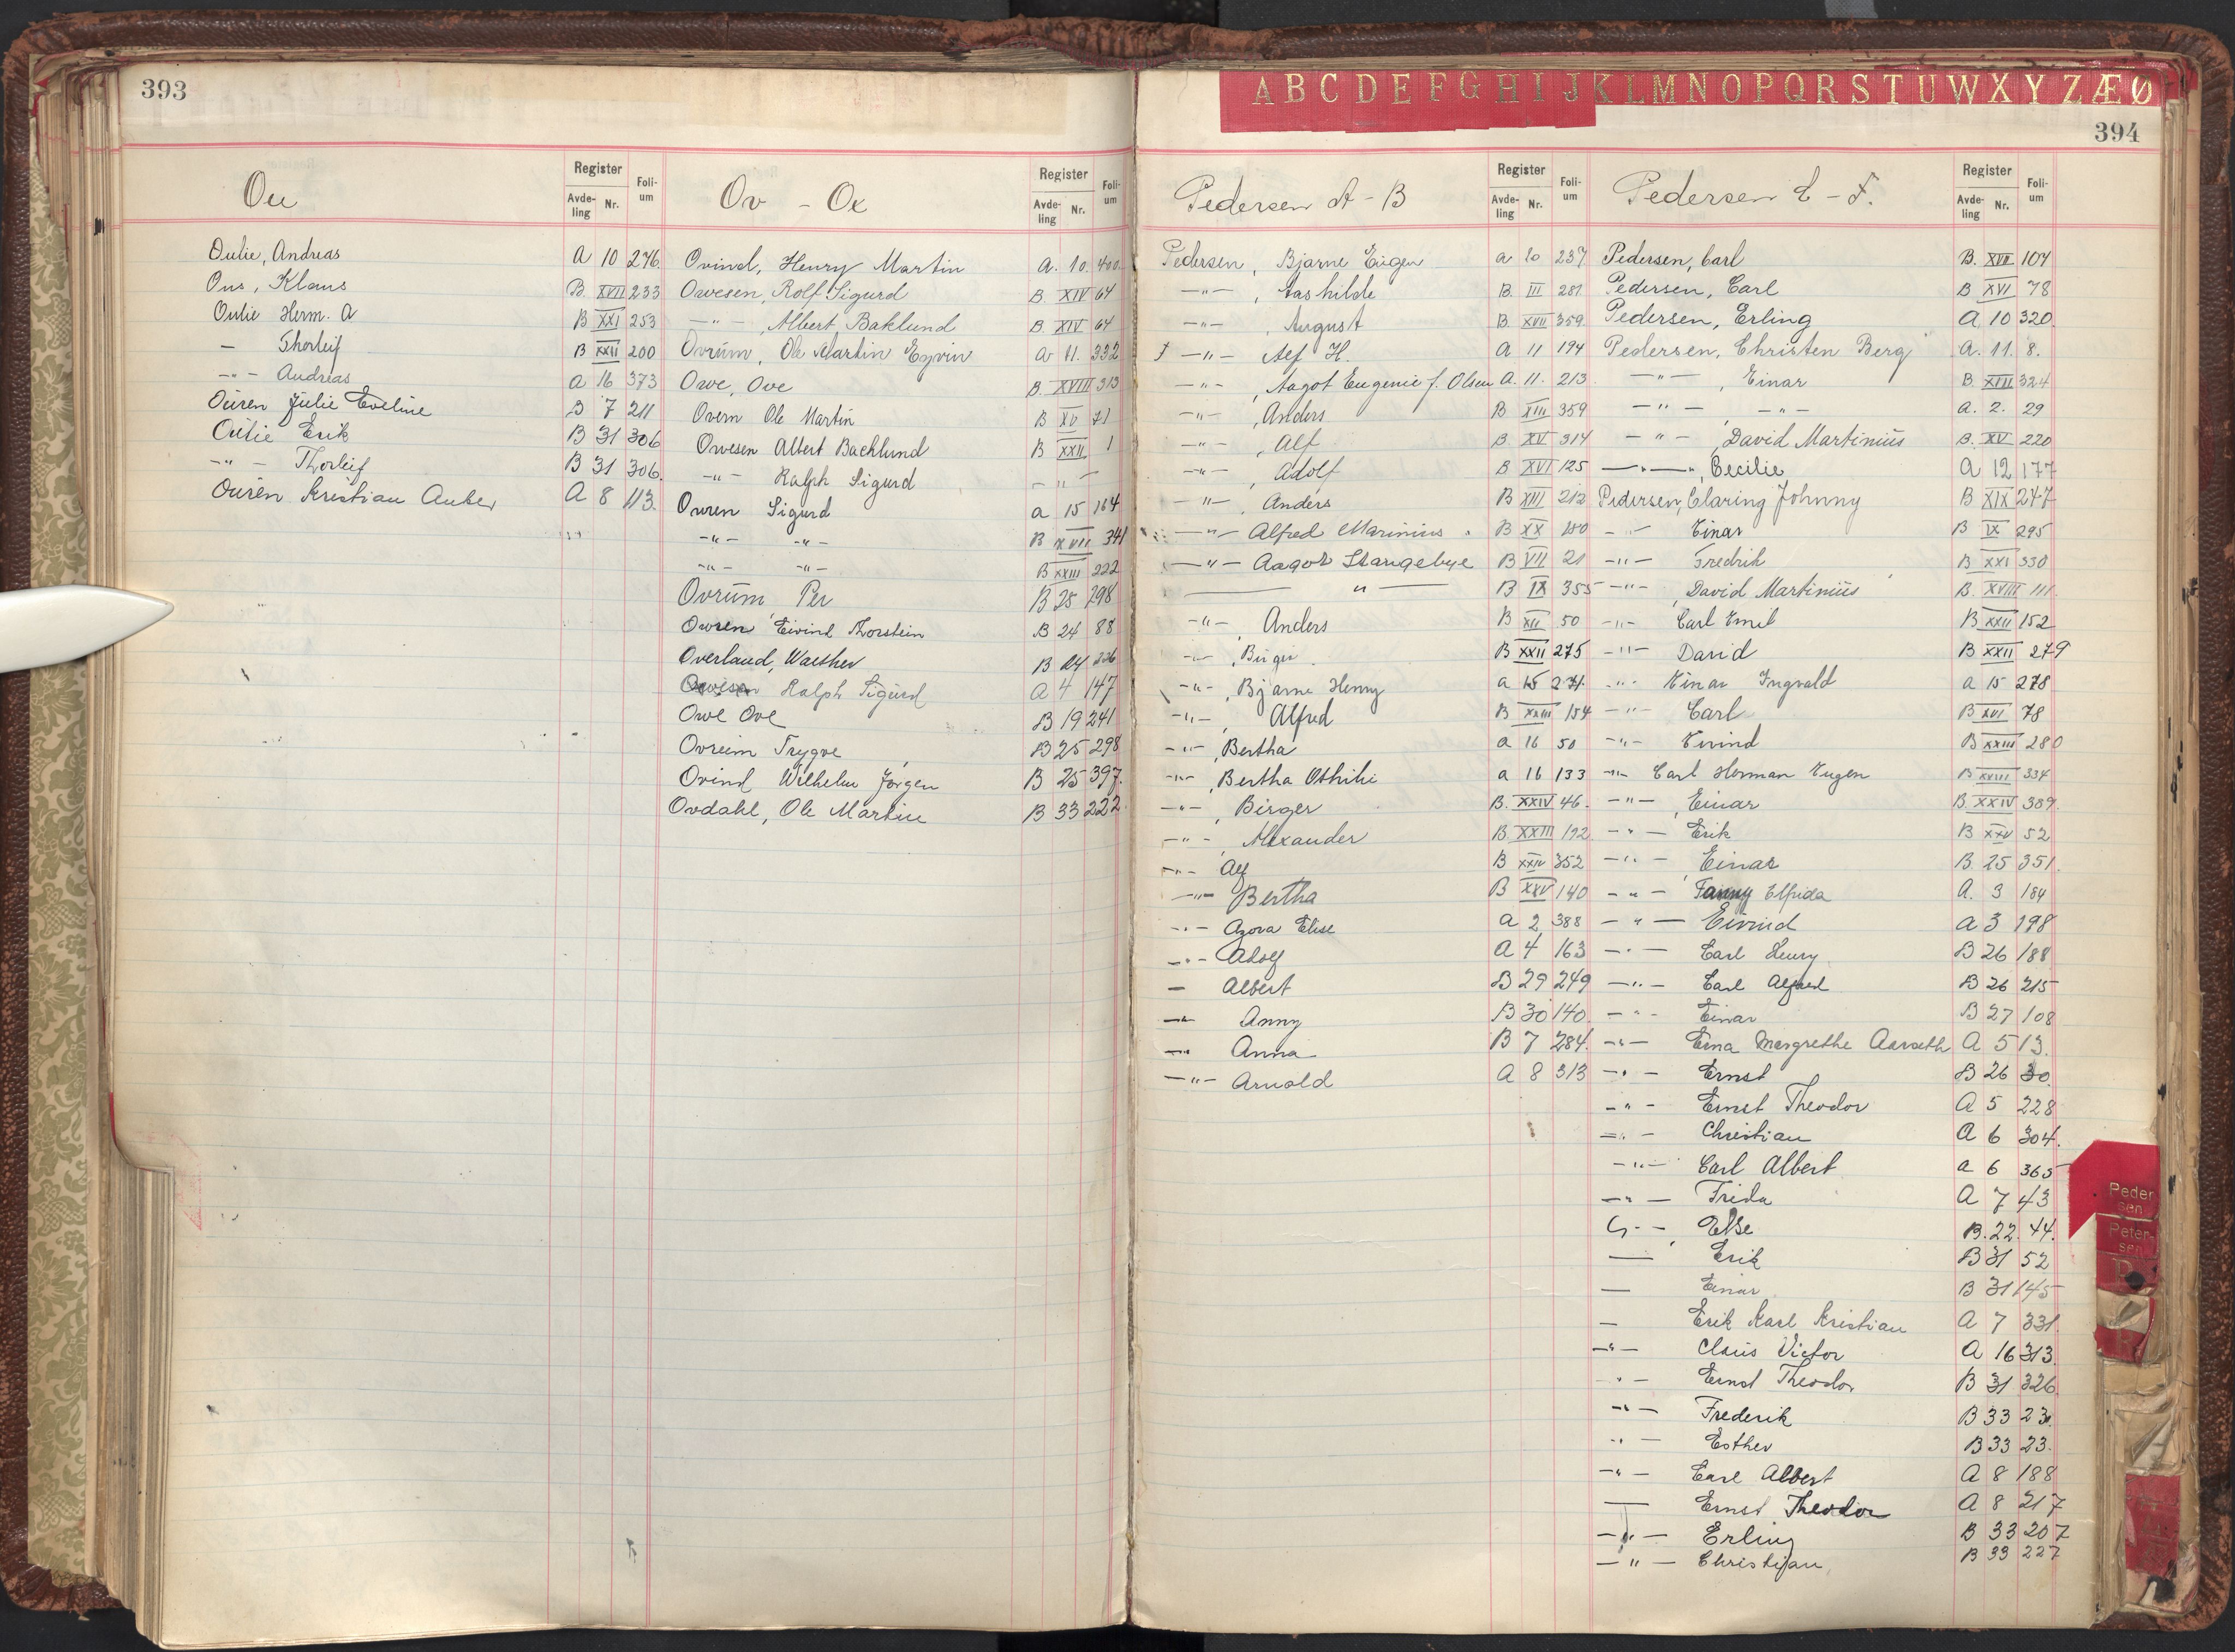 393
Register
Avde-ling Nr.
Foli-um
Ou
Oulie, Andreas A 10 276
Ous, Klaus B XVII 233
Oulie Herm. A B XXI 253
— Thorleif B XXII 200
-"- Andreas A 16 373
Ouren Julie Eveline B 7 211
Oulie Erik B 31 306
-"- Thorleif B 31 306
Ouren Kristian Auber A 8 113.
Register
Avde-ling Nr.
Foli-um
Ov - Ox
Ovind, Henry Martin A. 10. 400
Owesen, Rolf Sigurd B XIV 64
-"-, Albert Baklund B. XIV 64
Ovrum, Ole Martin Eyvin A 11. 332
Owe, Ove B. XVIII 313
Overn Ole Martin B XV 71
Owesen Albert Backlund B XXII 1
-"- Ralph Sigurd - " -
Ouren Sigurd a 15 164
-"- -"- B XVII 341
-"- -"- B XXIII 222
Ovrum Per B 25 298
Owren Eivind Thorstein B 24 88
Overland, Walther B 24 226
Owesen Ralph Sigurd A 4 147
Owe Ove B 19 241
Ovreim Trygve B 25 298
Ovind Wilhelm Jørgen B 25 397.
Ovdahl, Ole Martin B 33 222
A B C D E F G H I J K L M N O P Q R S T U W X Y Z Æ Ø
394
Register
Avde-ling Nr.
Foli-um
Pedersen A - B
Pedersen, Bjarne Eugen a 10 237
-"-, Aashilde B. III 281
-"-, August B. XVII 359
-"- Alf H. A 11 194
-"-, Aagot Eugenie f. Olsen A. 11. 213
-"-, Anders B XIII 359
-"-, Alf B. XV 314
-"-, Adolf B XVI 125
-"-, Anders B XIII 212
-"- Alfred Marinius B XX 180
-"- Aagot Stangebye B VII 21
— " — B IX 355
-"-, Anders B XII 50
-"-, Birger B XXII 275
-"-, Bjarne Henry a 15 271.
-"-, Alfred B XXIII 154
-"-, Bertha a 16 50
-"-, Bertha Othilie a 16 133
-"-, Birger B. XXIV 46.
-"-, Alexander B. XXIII 192
-"- Alf B XXIV 352
-"- Bertha B XXV 140
-"- Agora Elise a 2 388
-"- Adolf A 4 163
— Albert B 29 249
-"- Anny B 30 140
-"- Anna B 7 284.
-"- Arnold A 8 313
Register
Avde-ling Nr.
Foli-um
Pedersen C - F.
Pedersen, Carl B. XVII 104
Pedersen, Carl B XVI 78
Pedersen, Erling A. 10 320
Pedersen, Christen Berg A. 11. 8.
-"-, Einar B. XVII 324
-"- -"- a. 2. 29
-"-, David Martinius B. XV 220
-"-, Cecilie A 12 177
Pedersen, Claring Johnny B XIX 247
-"- Einar B IX 295
-"- Fredrik B XXI 330
-"-, David Martinius B. XVIII 111.
-"- Carl Emil B XXII 152
-"- David B XXII 279
-"- Einar Ingvald a 15 278
-"- Carl B XVI 78
-"- Eivind B XXIII 280
-"- Carl Herman Eugen B XVIII 334
-"-, Einar B. XXIV 389.
-"- Erik B XXV 52
-"- Einar B. 25 351.
-"- Fanny Elfrida A. 3 184
-"- Eivind a 3 198
-"- Carl Henry B 26 188
-"- Carl Alfred B 26 215
-"- Einar B 27 108
-"- Erna Margrethe Aarseth A 5 13.
-"- Ernst B 26 30
-"- Ernst Theodor A 5 228
-"- Christian A 6 304.
-"- Carl Albert a 6 365
-"- Frida A 7 43
-"-, Else B. 22. 44.
— Erik B 31 52
— Einar B 31 145
— Erik Karl Kristian A 7 331
-"- Claus Victor A 16 313.
-"- Ernst Theodor B 31 326
-"- Frederik B 33 23.
-"- Esther B 33 23.
-"- Carl Albert A 8 188
— Ernst Theodor A 8 217
-"- Erling B 33 207
-"- Christian B 33 227
Peder-sen
Peter-sen
P